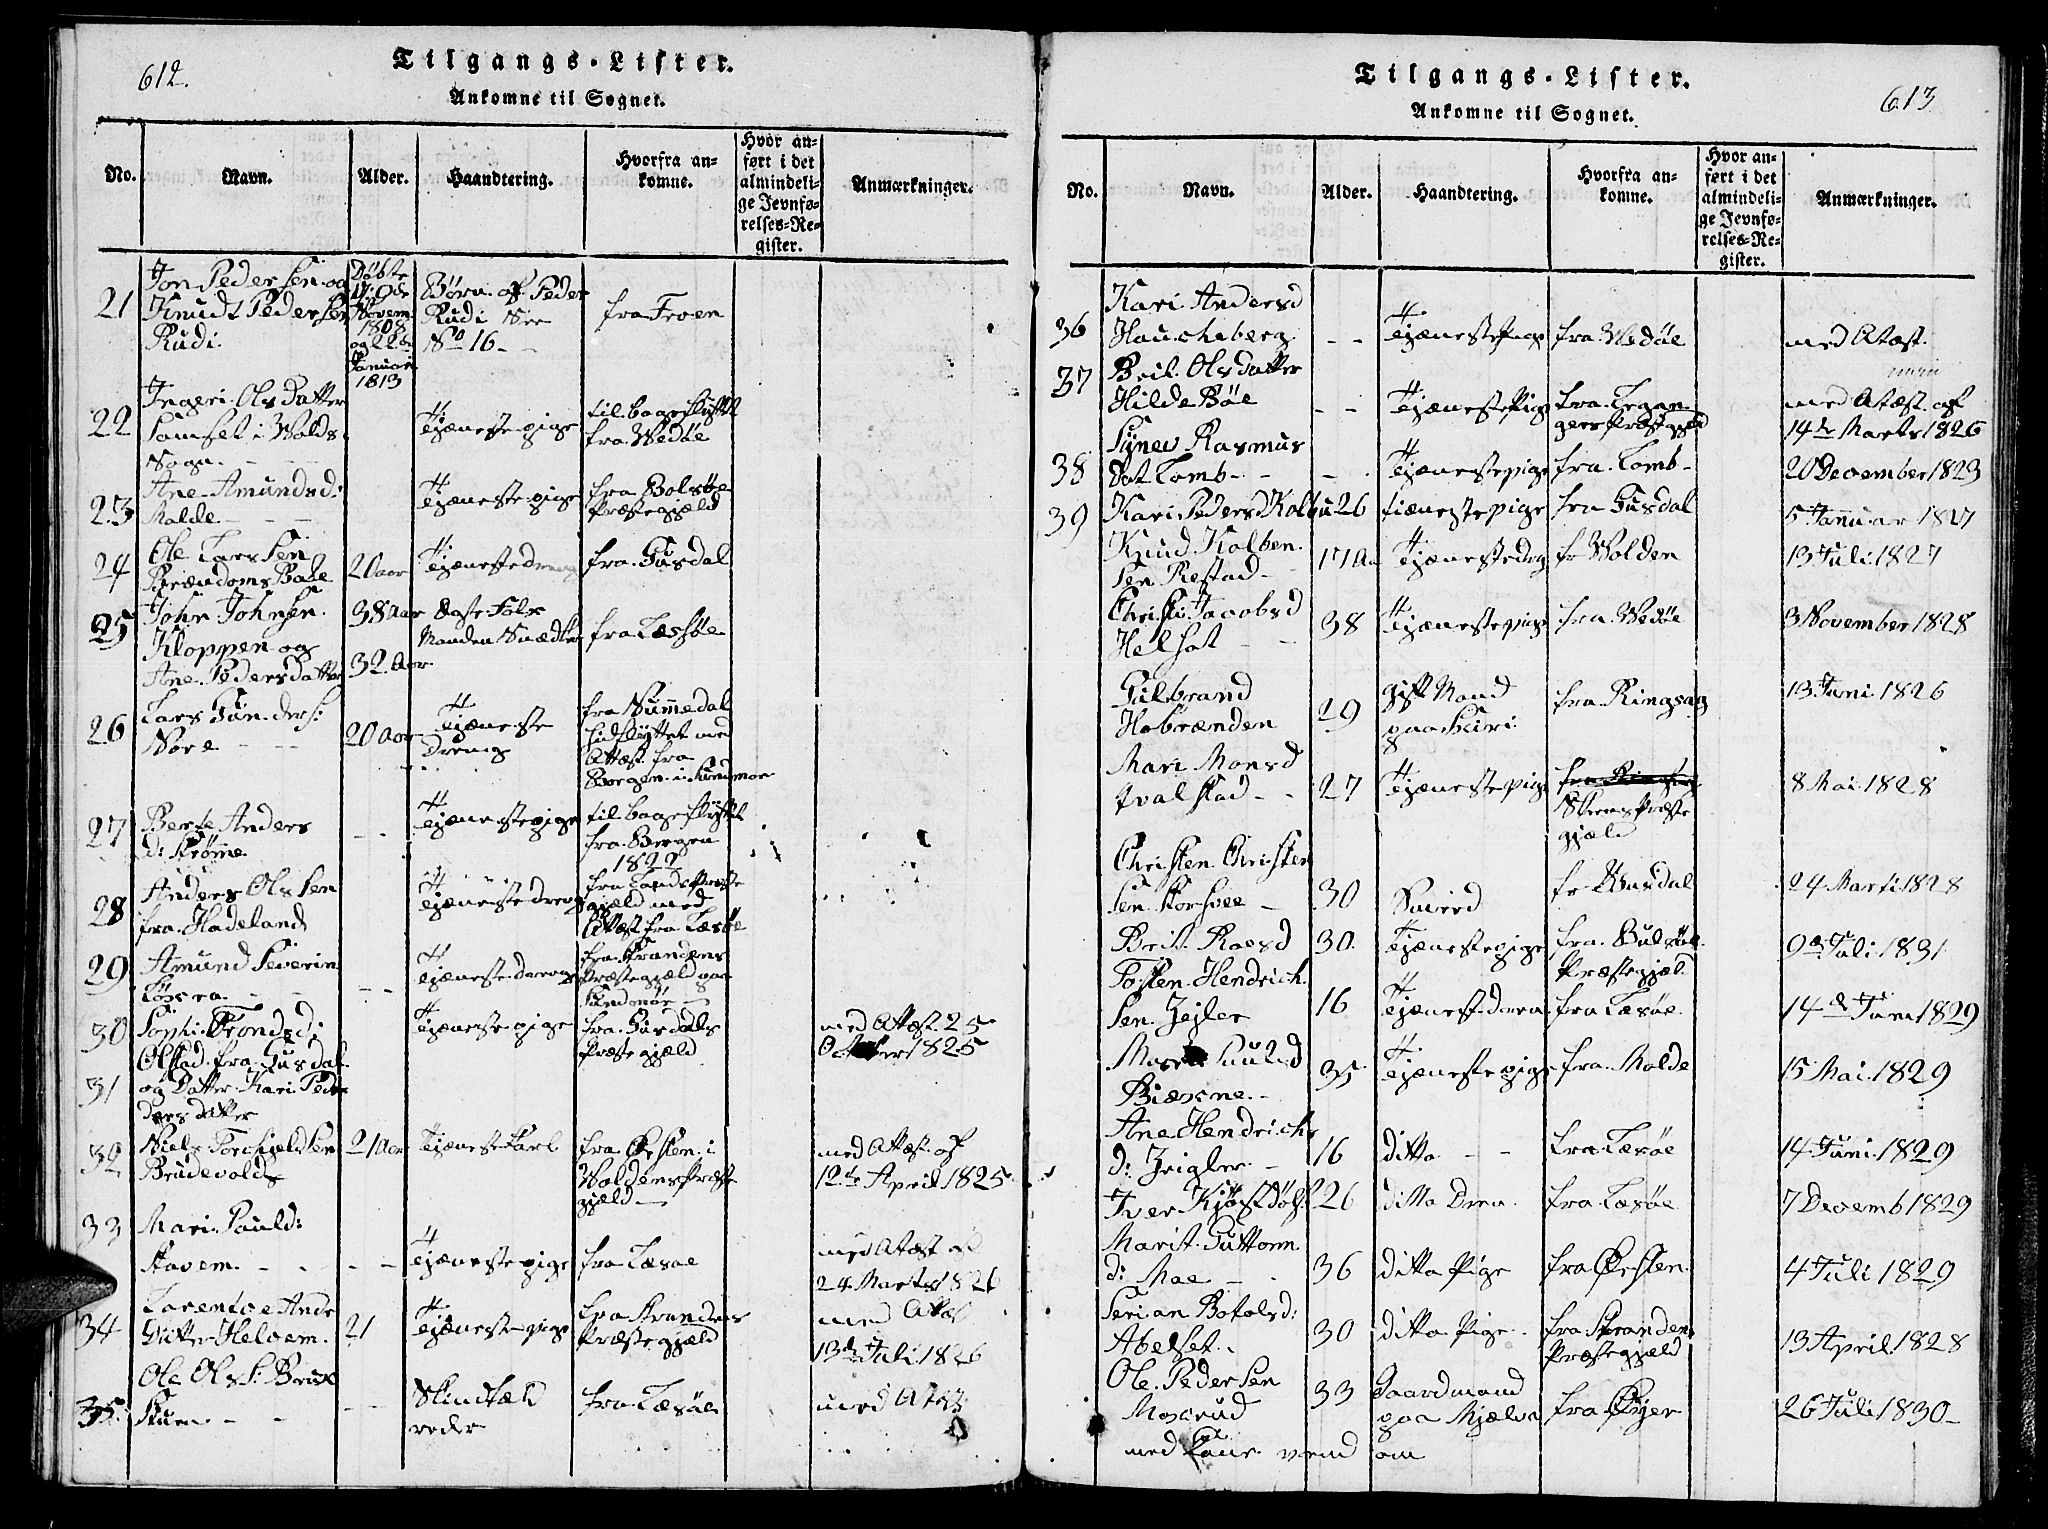 612.
Tilgangs-Lister.
Ankomne til Sognet.
No.
Navn.
Alder.
Haandtering.
Hvorfra an-
komne.
Hvor an-
ført i det
almindeli-
ge Jevnfø-
relses-Re-
gister.
Anmærkninger.
21
Jon Pedersen og
Knudt Pedersen
Rudi
Døbte
Novem
1808
og 22de
Januari
1813
Børn af Peder
Rudi See
No 16
fra Froen
22
Ingeri Olsdatter
Samset i Wolds
Sogn
Tjæneste pige
til bageflyttet
fra Wedøe
23
Ane Amundsd:
Malde
Tjæneste pige
fra Bolsøe
Præstegjæld
24
Ole Larssen
20 aar
Tjæneste dreng
fra Gusdal
25
John Johnsen
Kloppen og
Ane Pedersdatter
38 Aar
32 Aar
Ægte Folk
Manden Snædker
fra Læssøe
26
Lars Gundersf:
Nore
20 Aar
Tjæneste
Dreng
fra Nummedal
hidflyttet med
Attæst fra
Borgen i Sundmør
27
Berte Anders
d: Strømme
Tjæneste pige
til bageflyttet
fra Bergen
1822
28
Anders Olssen
fra Hadeland
Tjæneste dreng
fra Lands Præste
gjæld med
Attæst fra Læsøe
29
Amund Severin
Tjæneste dreng
fra Strandens
Præstegjæld paa
Sundmør
30
Sophi Trondsd:
Olstad fra Gusdal
Tjæneste pige
fra Gusdals
Præstegjæld
med Attæst 25
October 1825
31
og Datter Kari Peder
dersdatter
32
Niels Torchjeldsen
Brudevolds
21 Aar
Tjæneste Karl
fra Østen i
Woldens Præste
gjæld
med Attæst af
12te April 1825
33
Mari Pauld:
Stavem
Tjæneste pige
fra Læsøe
med Atæst af
24 Marts 1826
34
Larentse Ands
Datter Helvem
21
Tjæneste pige
fra Strandens
Præstegjæld
med Attæs
13de Juli 1826
35
Ole Ols S: Brude
Skindfæld
reder
fra Læsøe
med Attest
613
Tilgangs-Lister.
Ankomne til Sognet.
No.
Navn.
Alder.
Haandtering.
Hvorfra an-
komne.
Hvor an-
ført i det
almindeli-
ge Jevnfø-
relses-Re-
gister.
Anmærkninger.
36
Kari Andersd
Haucheberg
Tjæneste Pige
fra Wedøe
med Atæst
37
Brit Olsdatter
Hilde Bøe
Tjæneste Pige
gers Præstegjæld
med Atæst af
14de Marts 1826
38
Synev Rasmus
Dat Lomb
Tjæneste pige
fra Lomb
20 December 1823
39
Kari Pedersd Kolbu
26
tiæneste pige
fra Gusdal
5 Januar 1827
Knud Kolben
sen Restad
17 Aa
Tjæneste dreng
fr Wolden
13 Juli 1827
Christi Jacobsd
Helset
38
Tjæneste pige
fra Wedøe
3 November 1828
Gulbrand
Hobrænden
29
gift Mand
paa Heiri
fra Ringsag
13 Juni 1826
Mari Monsd
Hvalstad
27
Tjæneste pige
Skeens Præste
gjæld
8 Mai 1828
Christen Christen
sen Korsvee
30
Smeed
24 Marti 1828
Brit Roesd
30
Tjæneste pige
fra Bulsøe
Præstegjæl
9de Juli 1831
Tosten Hendrich
sen Zejler
16
Tjæneste dren
fra Læsøe
14de Juni 1829
35
Tjæneste pige
fra Molde
15 Mai 1829
Ane Hendrichs
d: Zeigler
16
ditto
fra Læsøe
14 Juni 1829
Iver Kjøstolfs
26
ditto Dren
fra Læsøe
7 Decemb 1829
Marit Guttorm
d: Moe
36
ditto Pige
fra Østen
4 Juli 1829
Serian Botolsd:
Abelset
30
ditto Pige
fra Stranden
Præstegjæld
13 April 1828
Ole Pedersen
Moserud
33
Gaardmand
paa Mjelva
fra Øyer
26 Juli 1830
med Kone vend om